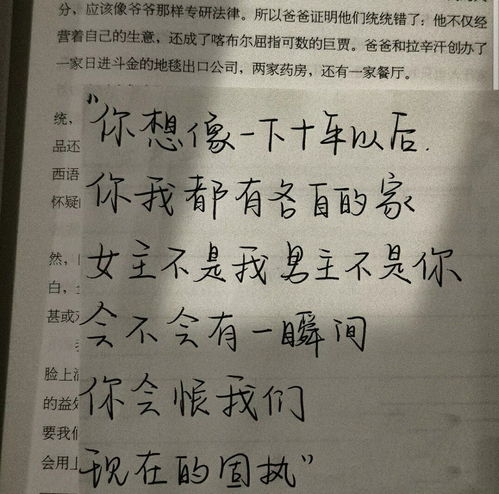 分、应该像爷爷那样专研法律。所以爸爸证明他们统统错了：他不仅经
营着自己的生意，还成了喀布尔屈指可数的巨贾。爸爸和拉辛汗创办了
一家日进斗金的地毯出口公司，两家药房，还有一家餐厅。
统，
品还
西语
怀疑
然，
白，
甚或
脸上
的益处
要我们
会用
"你想像一下十年以后.
你我都有各自的家
女主不是我男主不是你
会不会有一瞬间
你会恨我们
现在的固执"